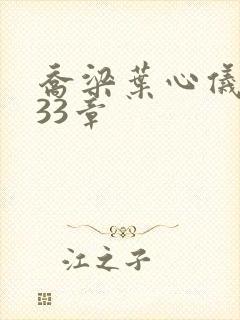 乔梁葉心儀
33章
江之子